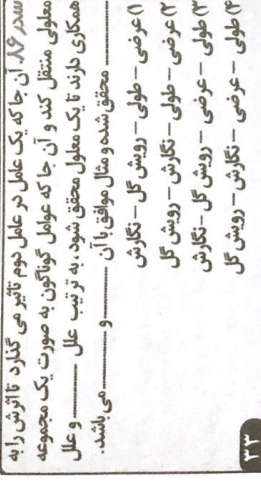 سدر ۹۸. آن جا که یک عامل در عامل دوم تاثیر می گذارد تا اثرش را به
معلولی منتقل کند و آن جا که عوامل گوناگون به صورت یک مجموعه
همکاری دارند تا یک معلول محقق شود، به ترتیب علل ــــــــ و علل
ــــــــ محقق شده و مثال موافق با آن ــــــــ و ــــــــ
می باشد.
۱) عرضی – طولی – رویش گل – نگارش
۲) عرضی – طولی – نگارش – رویش گل
۳) طولی – عرضی – رویش گل – نگارش
۴) طولی – عرضی – نگارش – رویش گل
۳۳